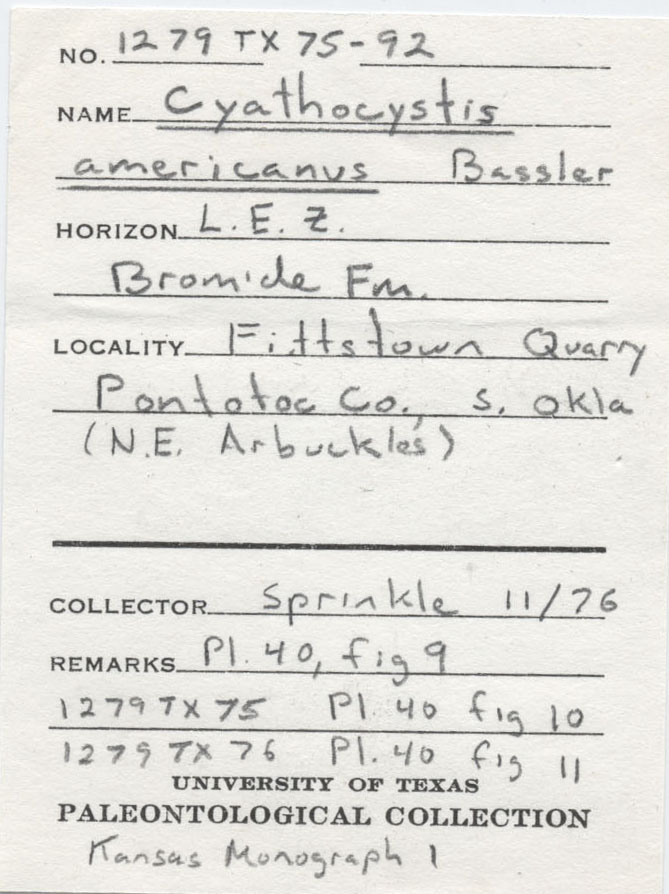 NO. 1279 TX 75-92
NAME Cyathocystis
americanus Bassler
HORIZON L. E. Z.
Bromide Fm.
LOCALITY Fittstown Quarry
Pontotoc Co., S. Okla
(N.E. Arbuckles)
COLLECTOR Sprinkle 11/76
REMARKS Pl. 40, fig 9
1279 TX 75 Pl. 40 fig 10
1279 TX 76 Pl. 40 fig 11
UNIVERSITY OF TEXAS
PALEONTOLOGICAL COLLECTION
Kansas Monograph 1